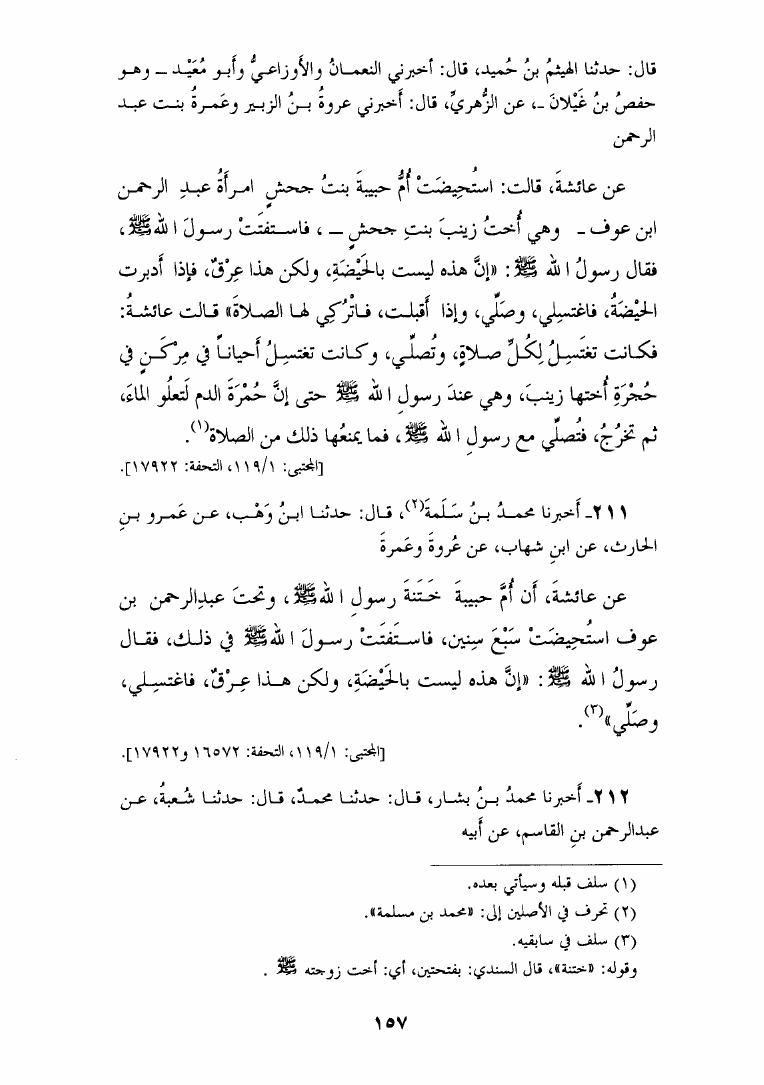 قال: حدثنا الهيثمُ بنُ حُميد، قال: أخبرني النعمـانُ والأَوزاعـيُّ وأَبـو مُعَيْـد ـ وهـو
حفصُ بنُ غَيْلانَ ـ، عن الزُّهريِّ، قال: أَخبرني عروةُ بـنُ الزبـير وعَمـرةُ بنـت عبـد
الرحمن
عن عائشةَ، قالت: استُحِيضَتْ أُمُّ حبيبةَ بنتُ جحشٍ امـرأَةُ عبـدِ الرحمـن
ابن عوف ـ وهي أُختُ زينبَ بنتِ جحشٍ ـ ، فاسـتفتَتْ رسـولَ الله ﷺ،
فقال رسولُ الله ﷺ: «إنَّ هذه ليست بالحَيْضَةِ، ولكن هذا عِرْقٌ، فإذا أدبرت
الحَيْضَةُ، فاغتسِلي، وصَلِّي، وإذا أَقبلت، فـاتْرُكِي لهـا الصـلاةَ» قـالت عائشـةُ:
فكـانت تغتَسِـلُ لِكُـلِّ صـلاةٍ، وتُصلِّـي، وكـانت تغتسِـلُ أحيانـاً في مِرْكَـنٍ في
حُجْرَةِ أُختها زينبَ، وهي عندَ رسولِ الله ﷺ حتى إنَّ حُمْرَةَ الدم لَتعلُو الماءَ،
ثم تَخرُجُ، فتُصلِّي مع رسولِ الله ﷺ، فما يمنعُها ذلك من الصلاة(١).
[المجتبى: ١/١١٩، التحفة: ١٧٩٢٢].
٢١١ـ أَخبرنا محمـدُ بـنُ سَـلَمةَ(٢)، قـال: حدثنـا ابـنُ وَهْـب، عـن عَمـرو بـنِ
الحارث، عن ابنِ شهاب، عن عُروةَ وعَمرةَ
عن عائشةَ، أن أُمَّ حبيبةَ خَتَنةَ رسولِ الله ﷺ، وتحتَ عبدِالرحمن بن
عوف استُحِيضَتْ سَبْعَ سِنين، فاستَفتَتْ رسـولَ الله ﷺ في ذلـك، فقـال
رسولُ الله ﷺ: «إنَّ هذه ليست بالحَيْضَةِ، ولكن هـذا عِـرْقٌ، فاغتسِـلي،
وصَلِّي»(٣).
[المجتبى: ١/١١٩، التحفة: ١٦٥٧٢ و١٧٩٢٢].
٢١٢ـ أَخبرنا محمدُ بـنُ بشار، قـال: حدثنـا محمـدٌ، قـال: حدثنـا شُـعبةُ، عـن
عبدالرحمن بنِ القاسم، عن أَبيه
(١) سلف قبله وسيأتي بعده.
(٢) تحرف في الأصلين إلى: «محمد بن مسلمة».
(٣) سلف في سابقيه.
وقوله: «ختنة»، قال السندي: بفتحتين، أي: أخت زوجته ﷺ .
١٥٧